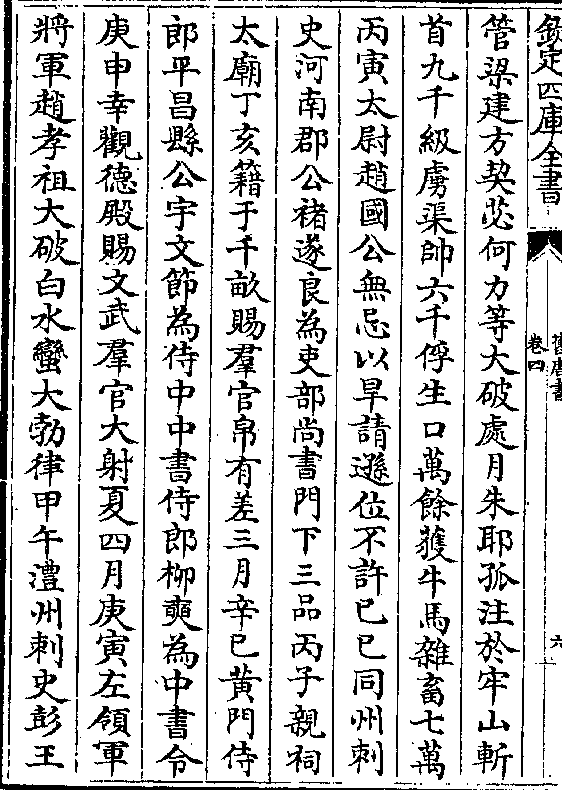 欽定四庫全書
舊唐書
卷四
六
管梁建方契苾何力等大破處月朱耶孤注於牢山斬
首九千級虜渠帥六千俘生口萬餘獲牛馬雜畜七萬
丙寅太尉趙國公無忌以旱請遜位不許己巳同州刺
史河南郡公褚遂良為吏部尚書門下三品丙子親祠
太廟丁亥籍于千畝賜羣官帛有差三月辛巳黃門侍
郎平昌縣公宇文節為侍中中書侍郎柳奭為中書令
庚申幸觀德殿賜文武羣官大射夏四月庚寅左領軍
將軍趙孝祖大破白水蠻大勃律甲午澧州刺史彭王